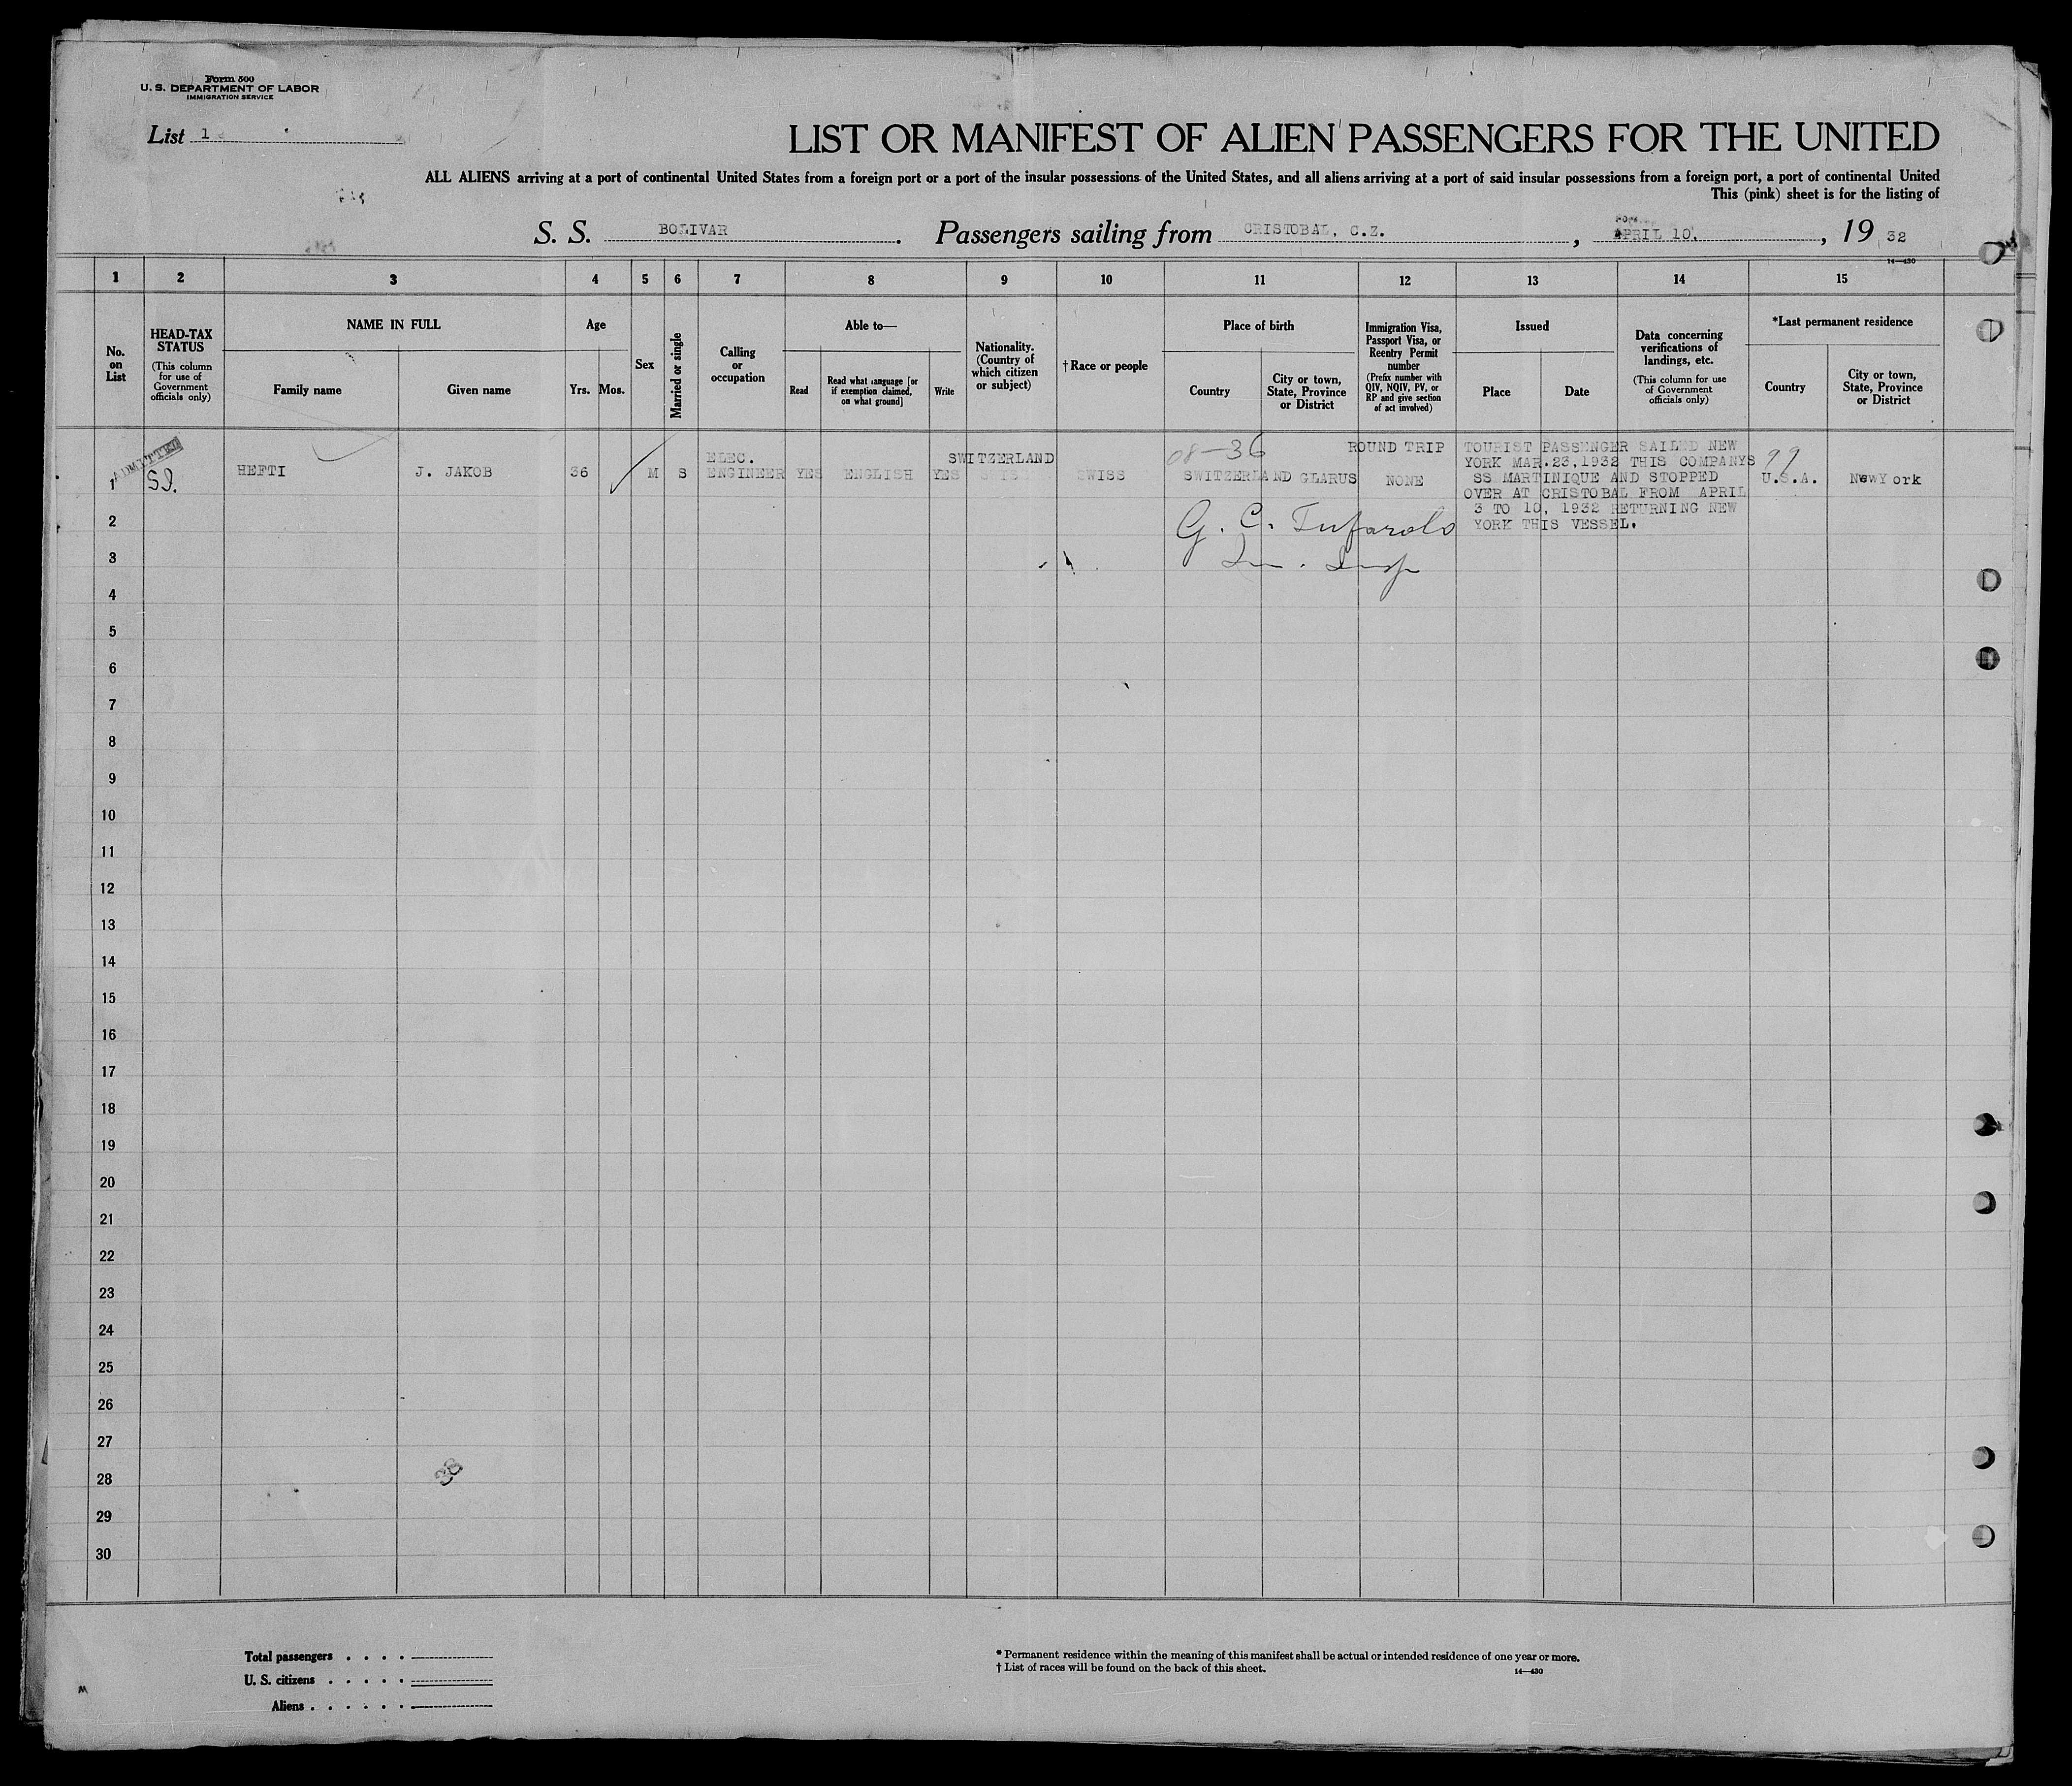 Form 500
U. S. DEPARTMENT OF LABOR
IMMIGRATION SERVICE
List 1
LIST OR MANIFEST OF ALIEN PASSENGERS FOR THE UNITED
ALL ALIENS arriving at a port of continental United States from a foreign port or a port of the insular possessions of the United States, and all aliens arriving at a port of said insular possessions from a foreign port, a port of continental United
This (pink) sheet is for the listing of
S. S. BOLIVAR. Passengers sailing from CRISTOBAL, C.Z., APRIL 10, 1932
14—430
1 2 3 4 5 6 7 8 9 10 11 12 13 14 15
No. on List
HEAD-TAX STATUS
(This column for use of Government officials only)
NAME IN FULL
Family name
Given name
Age
Yrs. Mos.
Sex
Married or single
Calling or occupation
Able to—
Read
Read what language [or if exemption claimed, on what ground]
Write
Nationality. (Country of which citizen or subject)
†Race or people
Place of birth
Country
City or town, State, Province or District
Immigration Visa, Passport Visa, or Reentry Permit number
(Prefix number with QIV, NQIV, PV, or RP and give section of act involved)
Issued
Place
Date
Data concerning verifications of landings, etc.
(This column for use of Government officials only)
*Last permanent residence
Country
City or town, State, Province or District
ADMITTED
S.I.
1 HEFTI J. JAKOB 36 M S ELEC. ENGINEER YES ENGLISH YES SWITZERLAND SWISS SWITZERLAND GLARUS NONE U.S.A. NewYork
08-36
99
ROUND TRIP TOURIST PASSENGER SAILED NEW
YORK MAR.23,1932 THIS COMPANYS
SS MARTINIQUE AND STOPPED
OVER AT CRISTOBAL FROM APRIL
3 TO 10, 1932 RETURNING NEW
YORK THIS VESSEL.
G. C. Tufarolo
Im. Insp
2
3
4
5
6
7
8
9
10
11
12
13
14
15
16
17
18
19
20
21
22
23
24
25
26
27
28
29
30
38
Total passengers
U. S. citizens
Aliens
* Permanent residence within the meaning of this manifest shall be actual or intended residence of one year or more.
† List of races will be found on the back of this sheet.
14—430